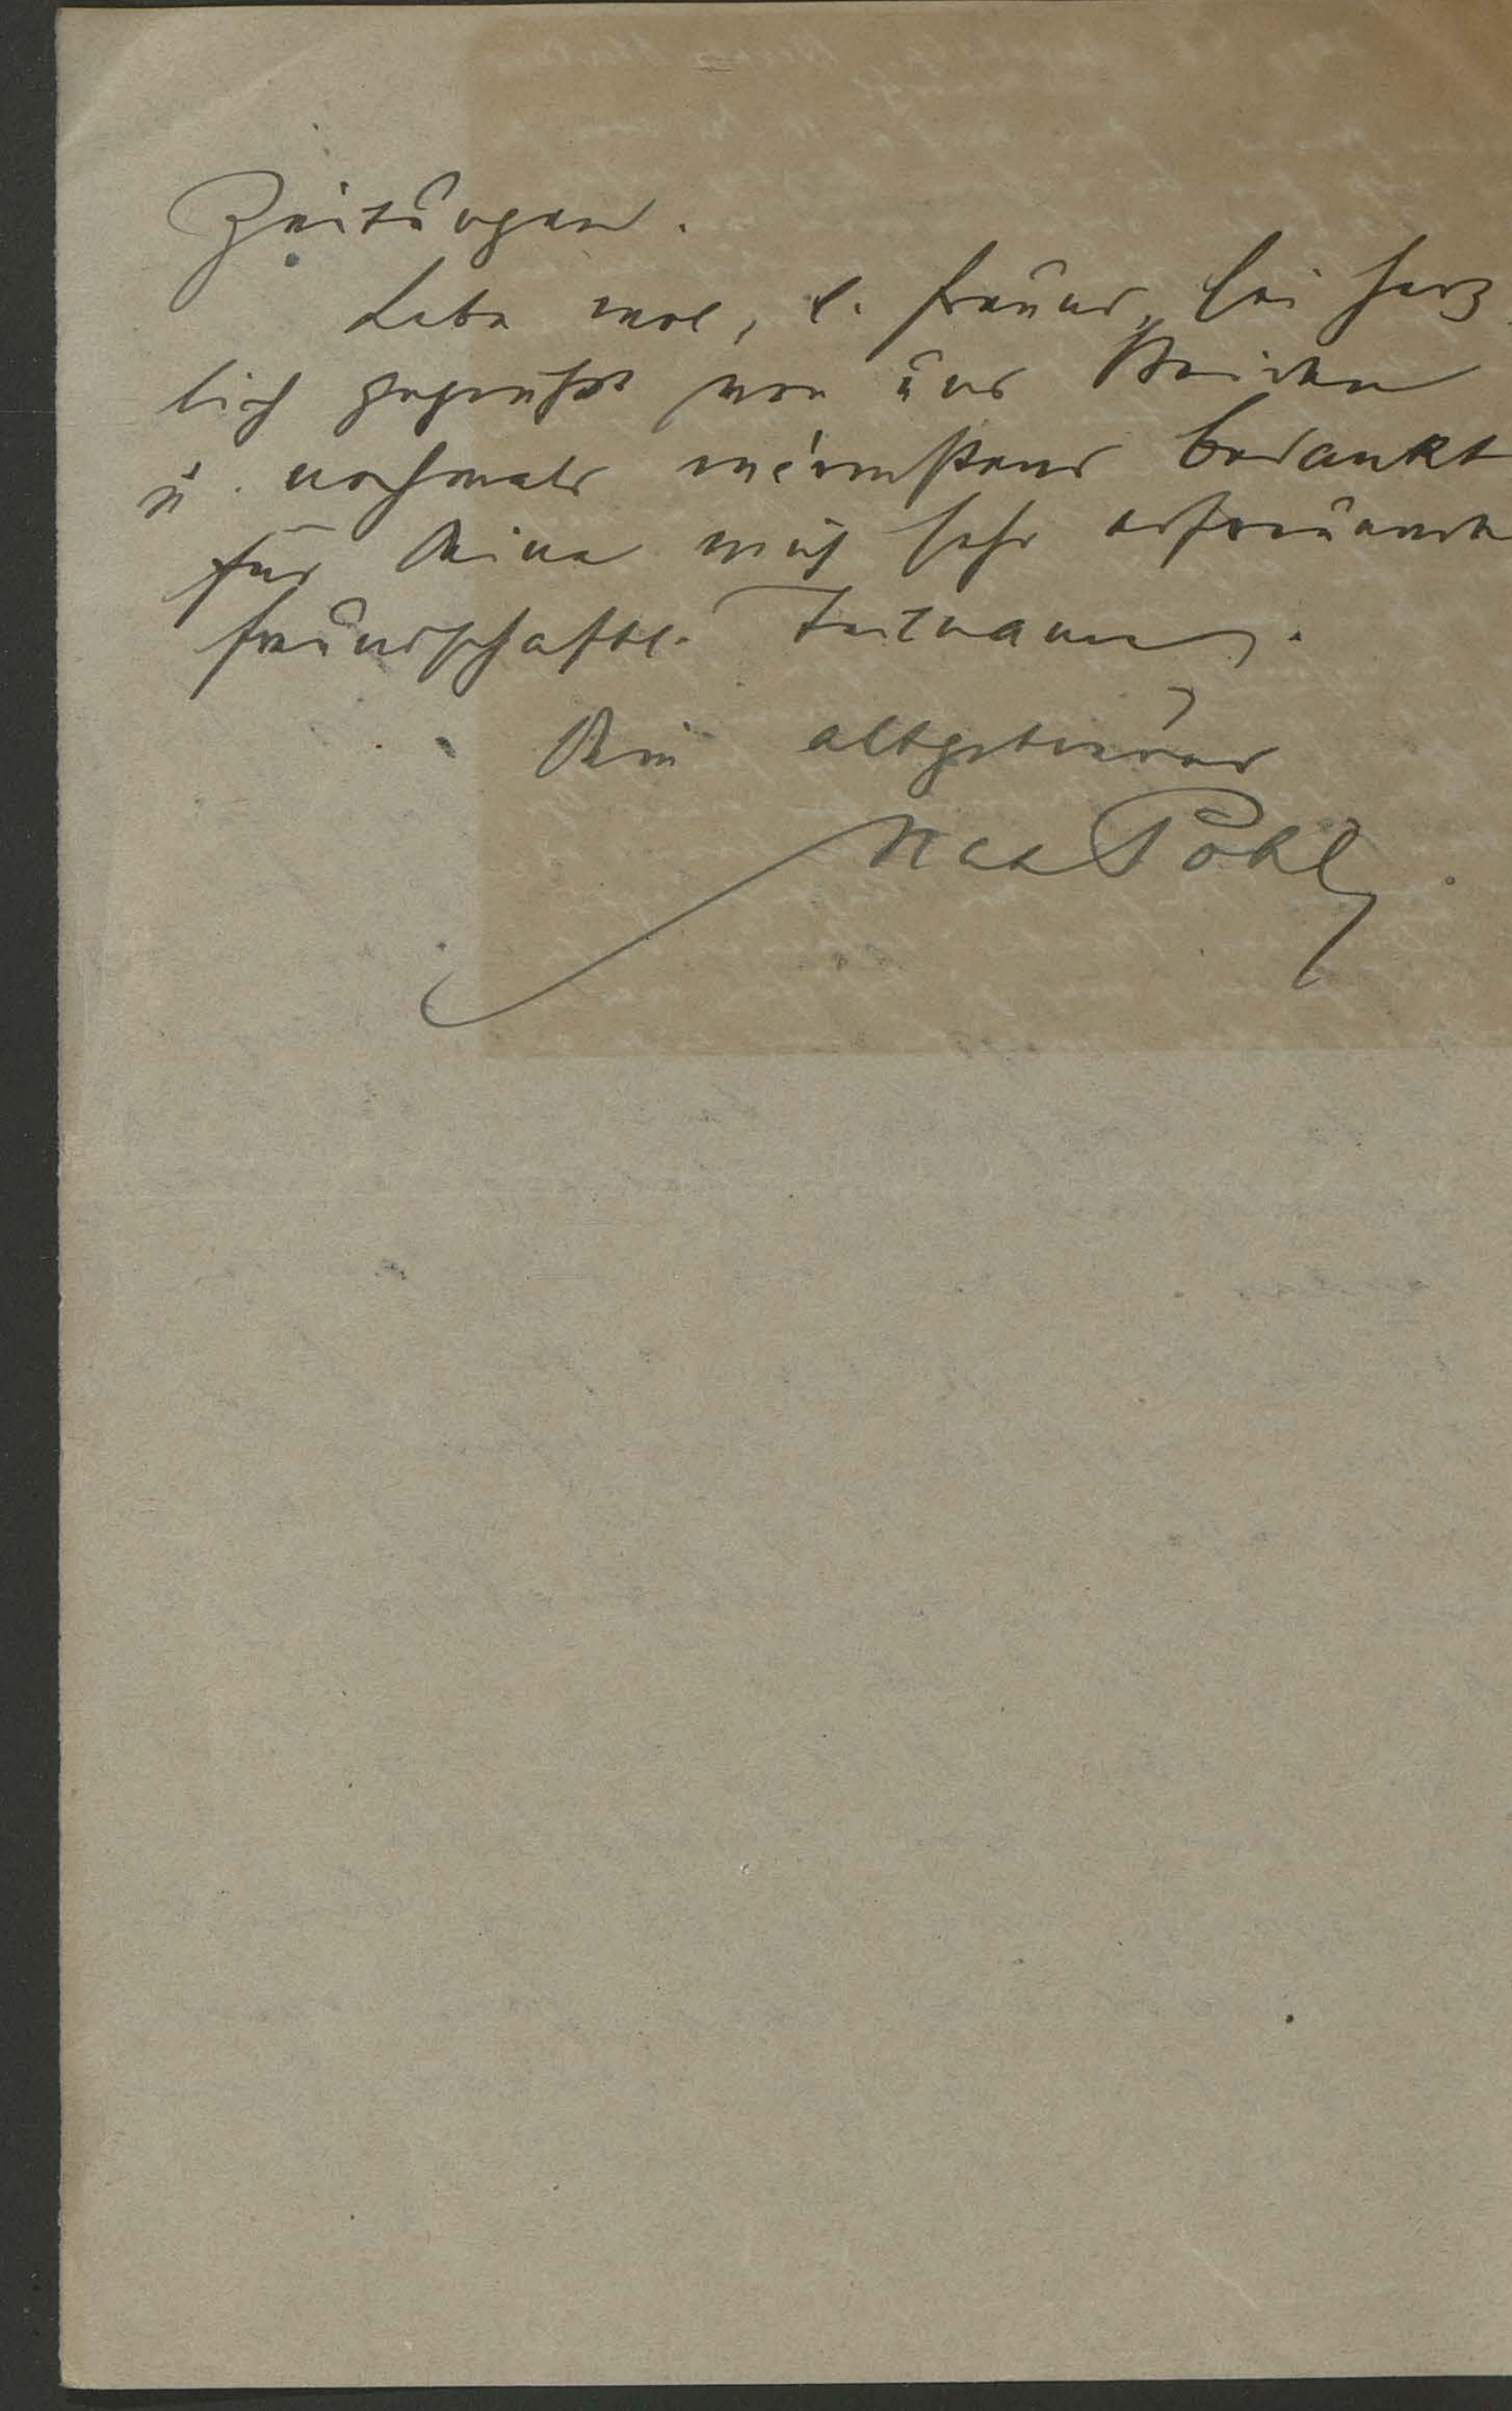 Zeitungen.
Lebe wol, l. Freund, sei herz
lich gegrüßt von uns Beiden
u. nochmals wärmstens bedankt
für Deine mich sehr erfreuende
freundschaftl. Teilnahme.
Dein altgetreuer
Max Pohl.